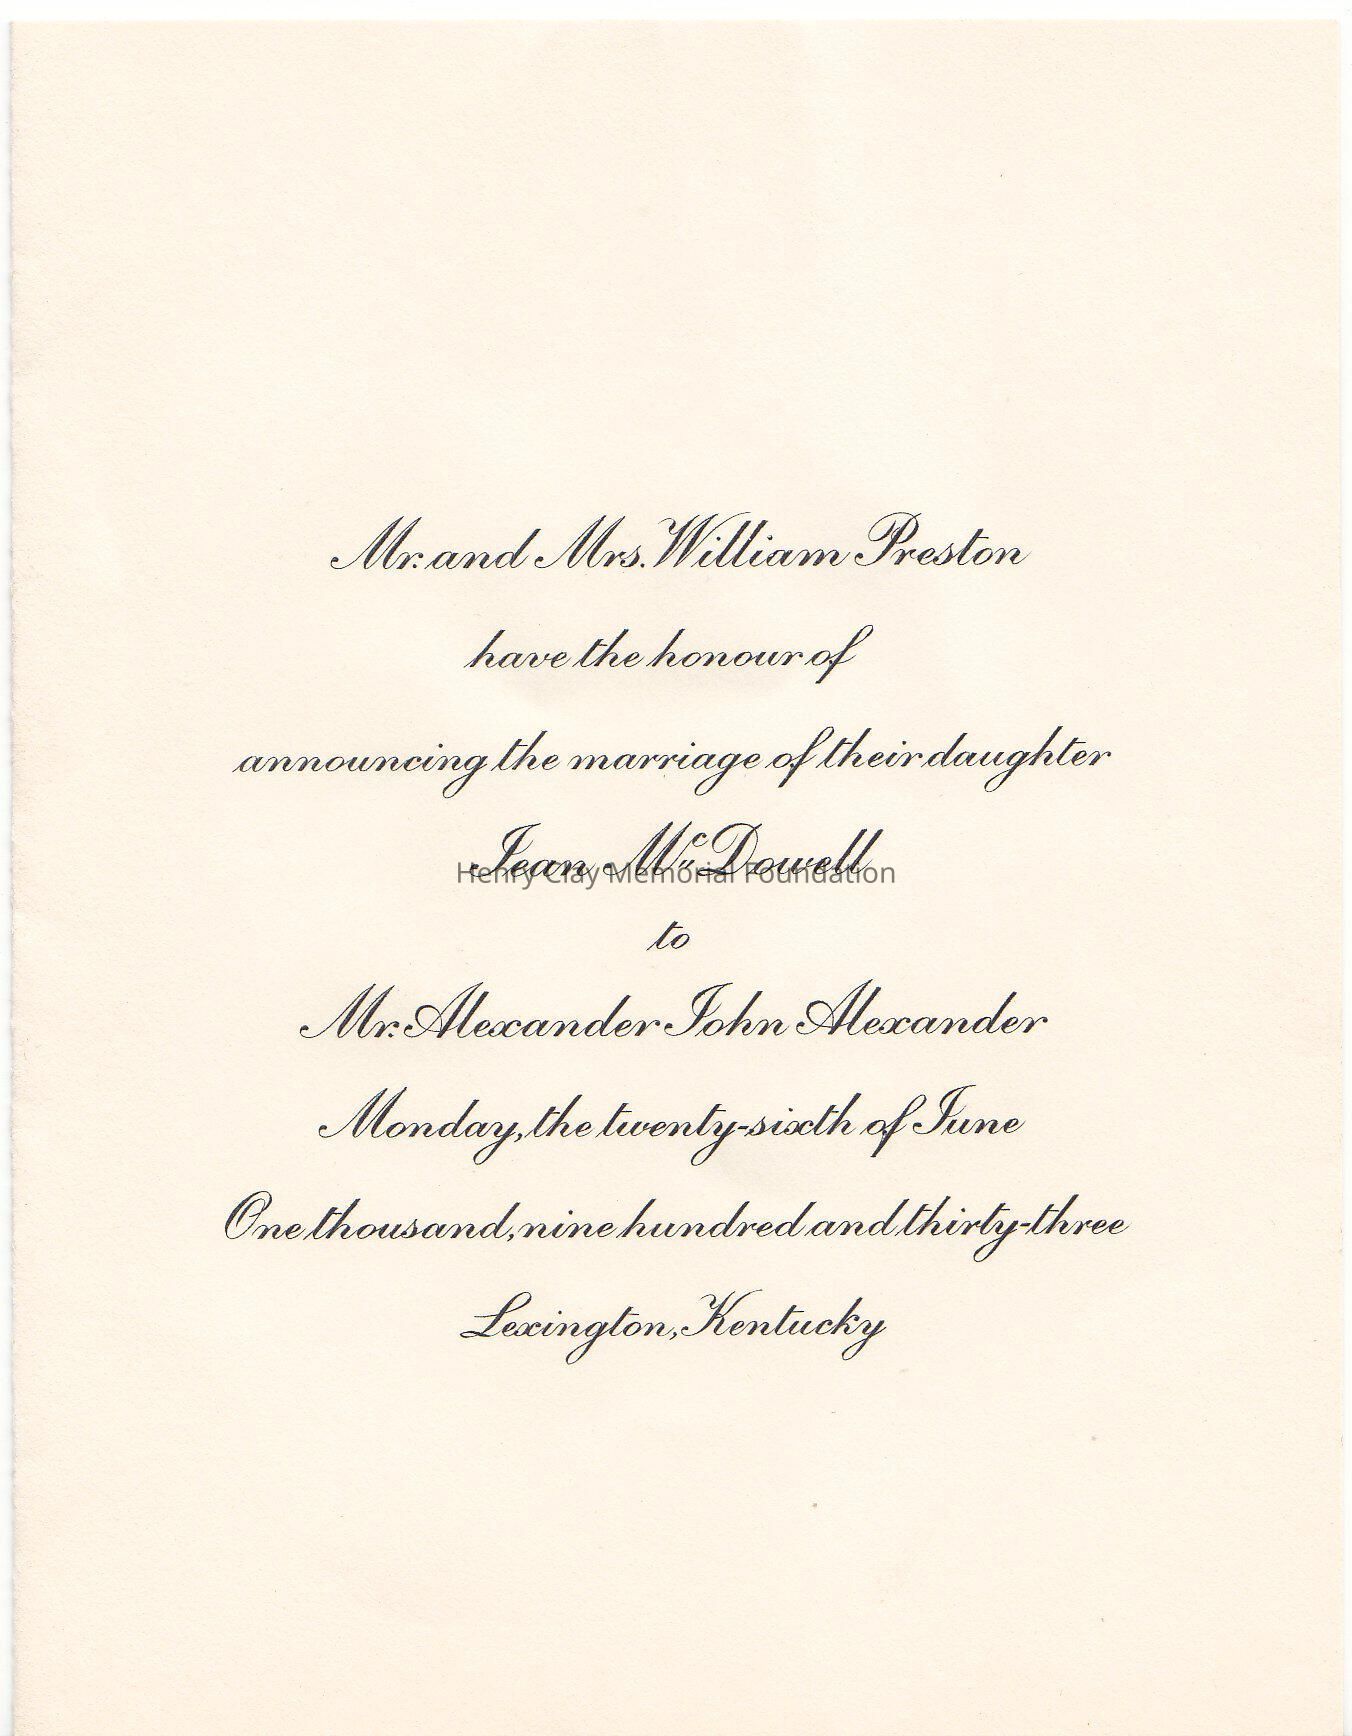 Mr. and Mrs. William Preston
have the honour of
announcing the marriage of their daughter
Jean McDowell
Henry Clay Memorial Foundation
to
Mr. Alexander John Alexander
Monday, the twenty-sixth of June
One thousand, nine hundred and thirty-three
Lexington, Kentucky